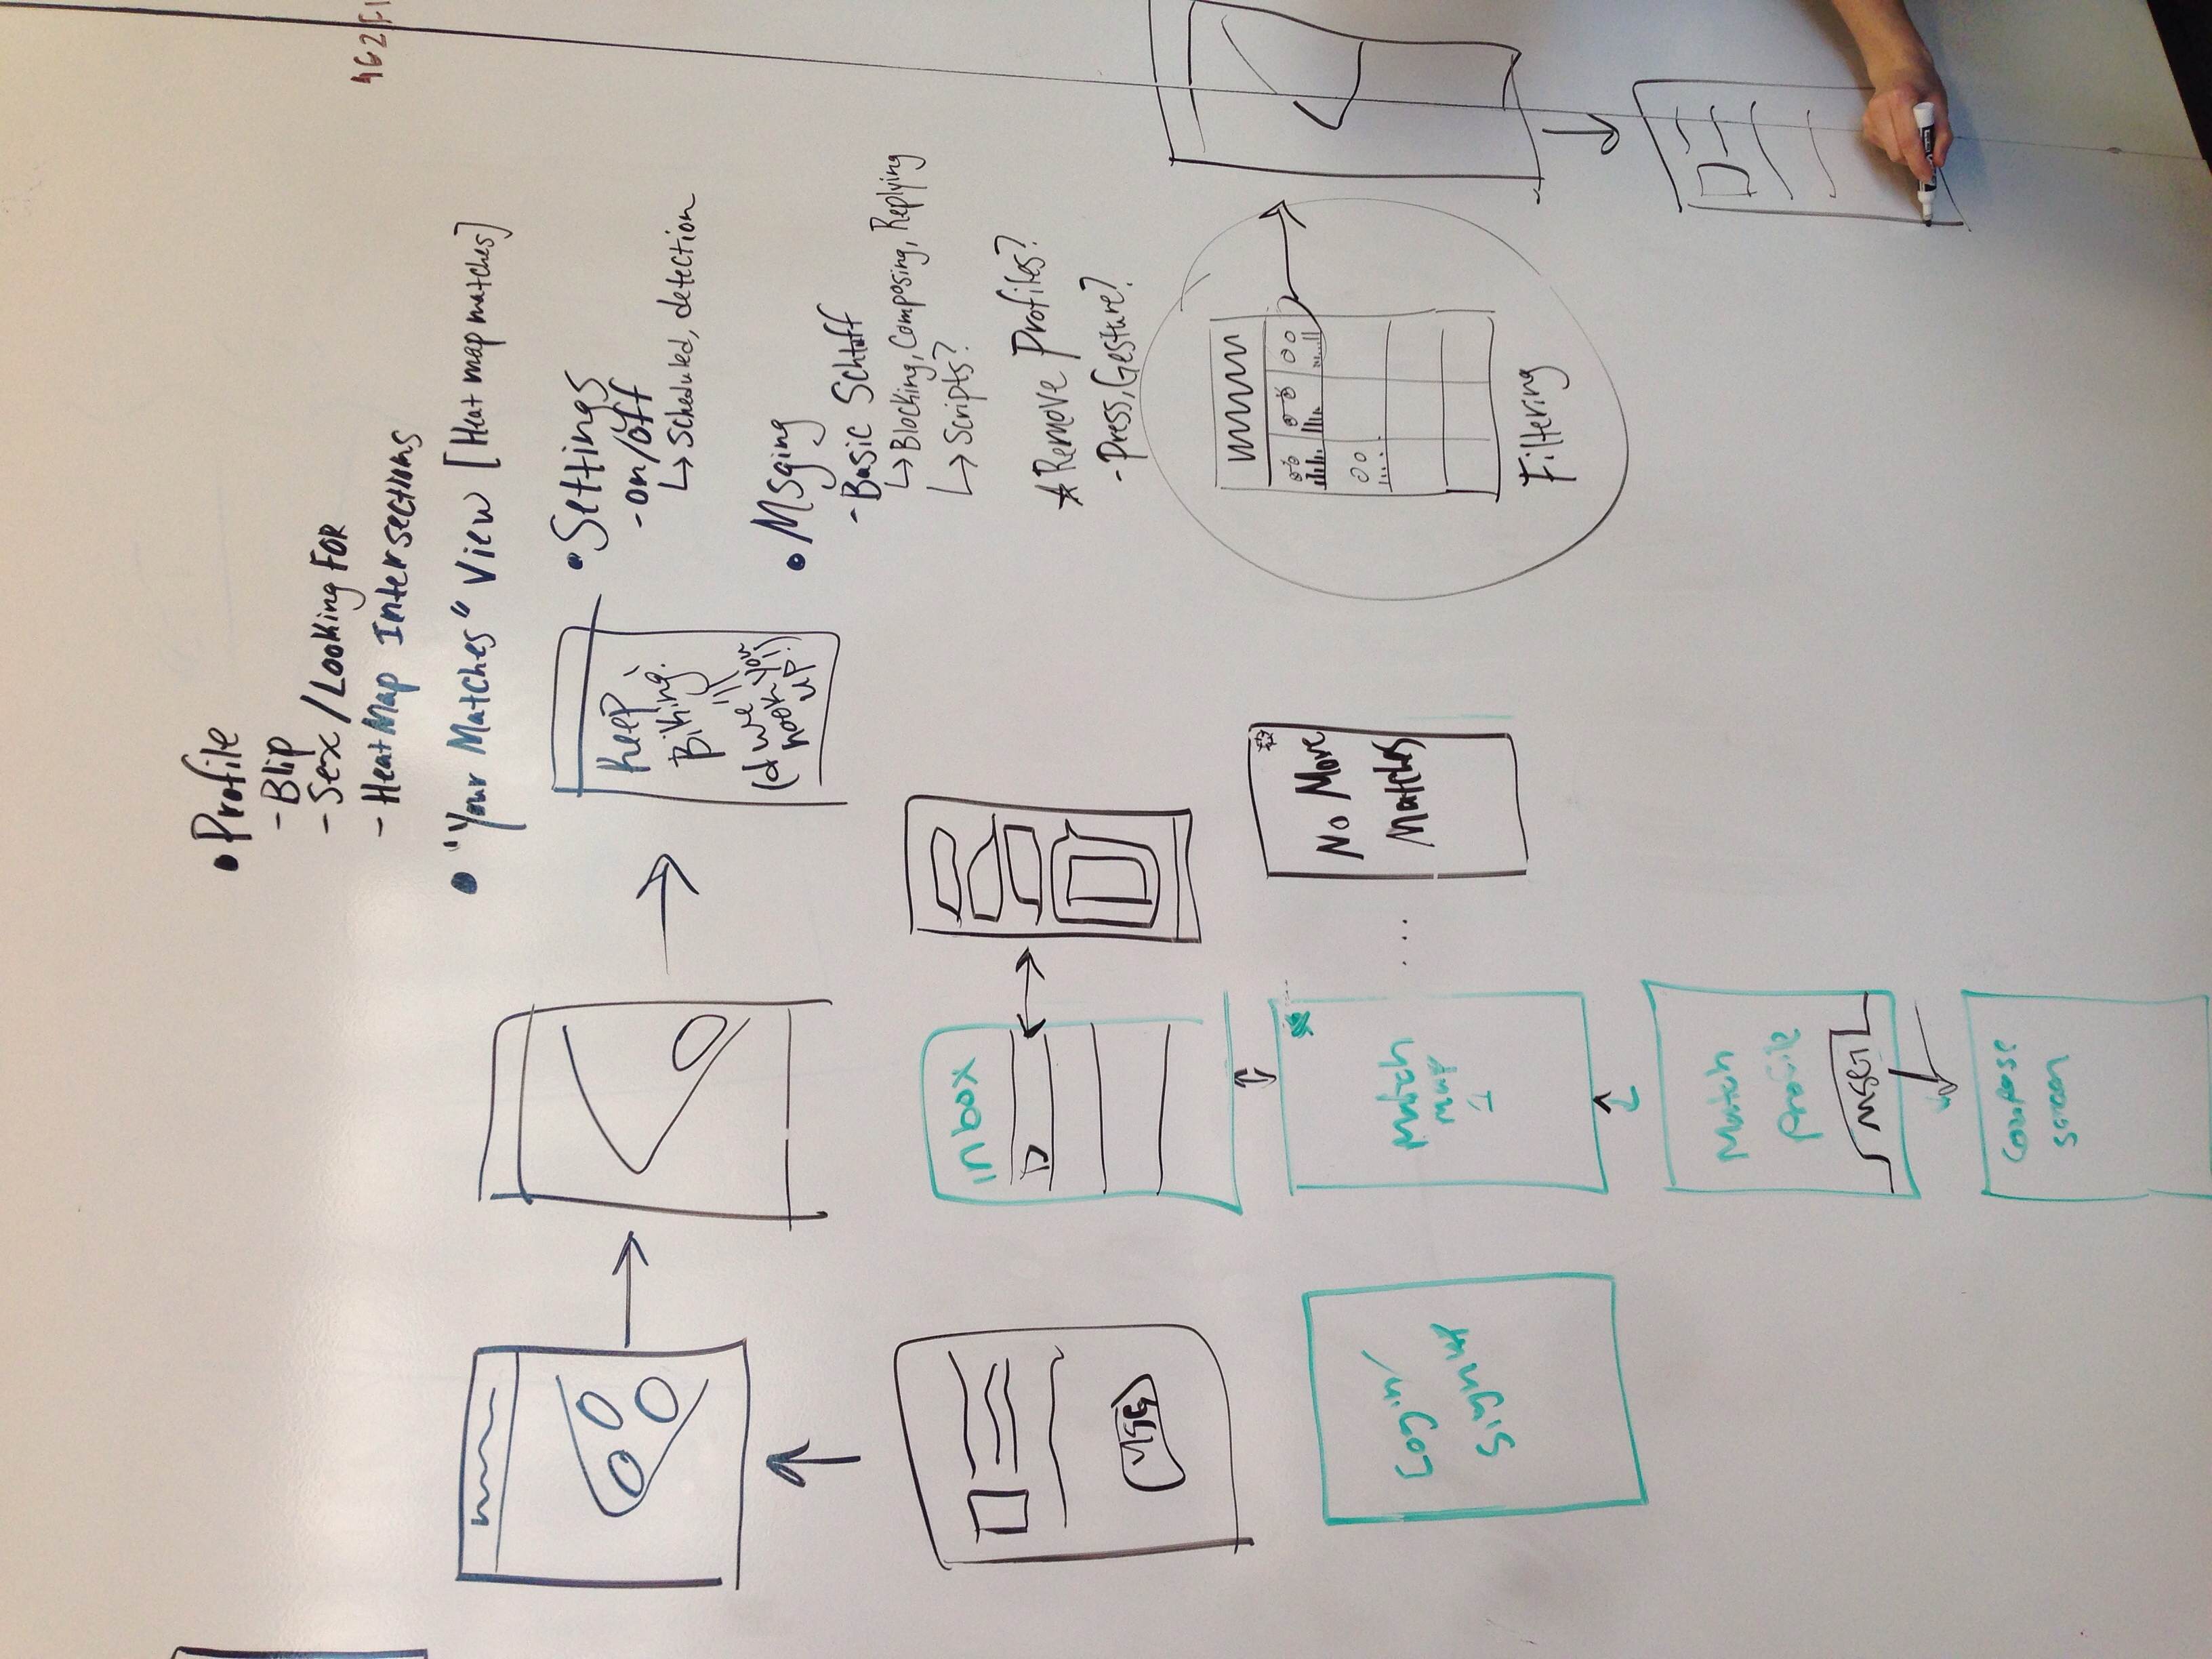 • Profile
- Blip
- Sex / Looking FOR
- Heat Map Intersections
• "Your Matches" View [Heat map matches]
• Settings
- on/off
↳ Scheduled, detection
• Msging
- Basic Schtuff
↳ Blocking, Composing, Replying
↳ Scripts?
★ Remove Profiles?
- Press, Gesture?
Keep
Biking!
(& we'll
hook you
up!)
MSG
inbox
Login/
Signup
Match
map
1
...
No More
Matches
Filtering
Match
Profile
MSG
Compose
screen